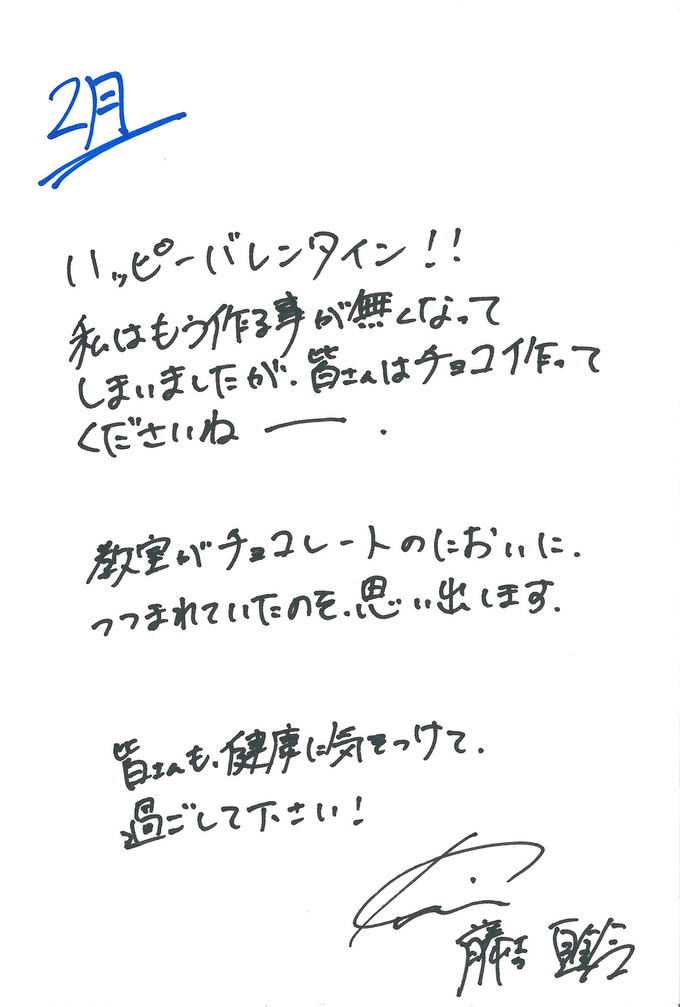 2月
ハッピーバレンタイン!!
私はもう作る事が無くなって
しまいましたが、皆さんはチョコ作って
くださいねー.
教室がチョコレートのにおいに.
つつまれていたのを、思い出します.
皆さんも、健康に気をつけて.
過ごして下さい!
藤吉夏鈴